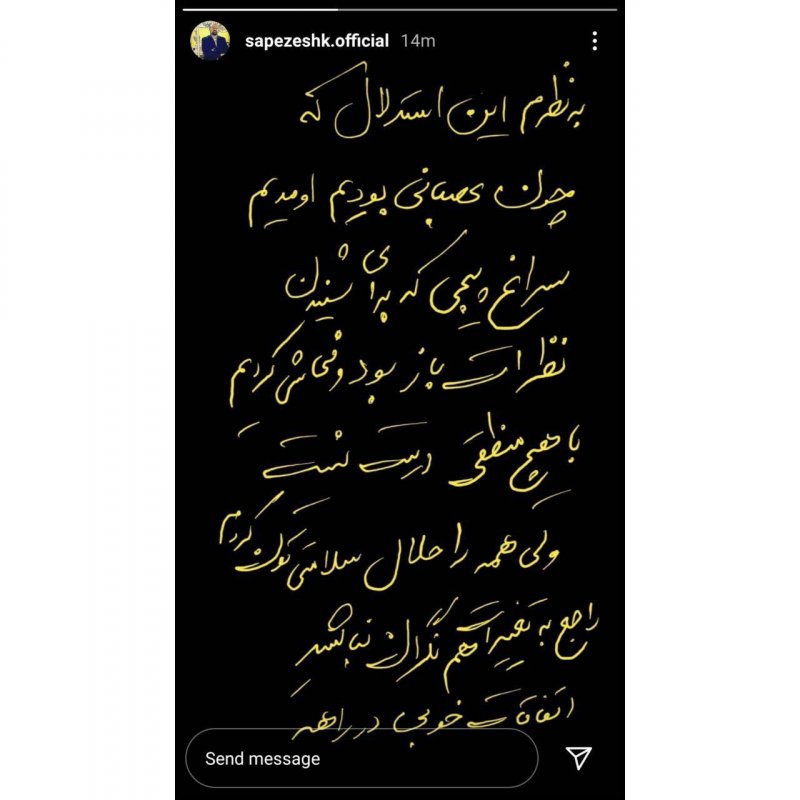 sapezeshk.official 14m
به نظرم این استدلال که
چون عصبانی بودیم اومدیم
سراغ پیجی که برای شنیدن
نظرات باز بود و فحاشی کردیم
با هیچ منطقی درست نیست
ولی همه را حلال سلامتی کردم
راجع به تغییرات هم نگران نباشید
اتفاقات خوبی در راهه
Send message